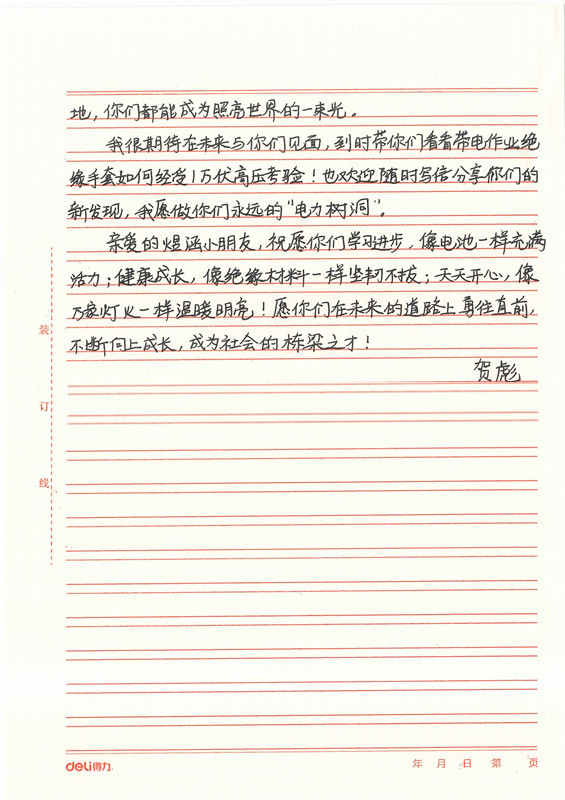 地，你们都能成为照亮世界的一束光。
我很期待在未来与你们见面，到时带你们看看带电作业绝
缘手套如何经受1万伏高压考验！也欢迎随时写信分享你们的
新发现，我愿做你们永远的“电力树洞”。
亲爱的煜涵小朋友，祝愿你们学习进步，像电池一样充满
活力；健康成长，像绝缘材料一样坚韧不拔；天天开心，像
万家灯火一样温暖明亮！愿你们在未来的道路上勇往直前，
不断向上成长，成为社会的栋梁之才！
贺彪
装
订
线
deli得力
年 月 日 第 页